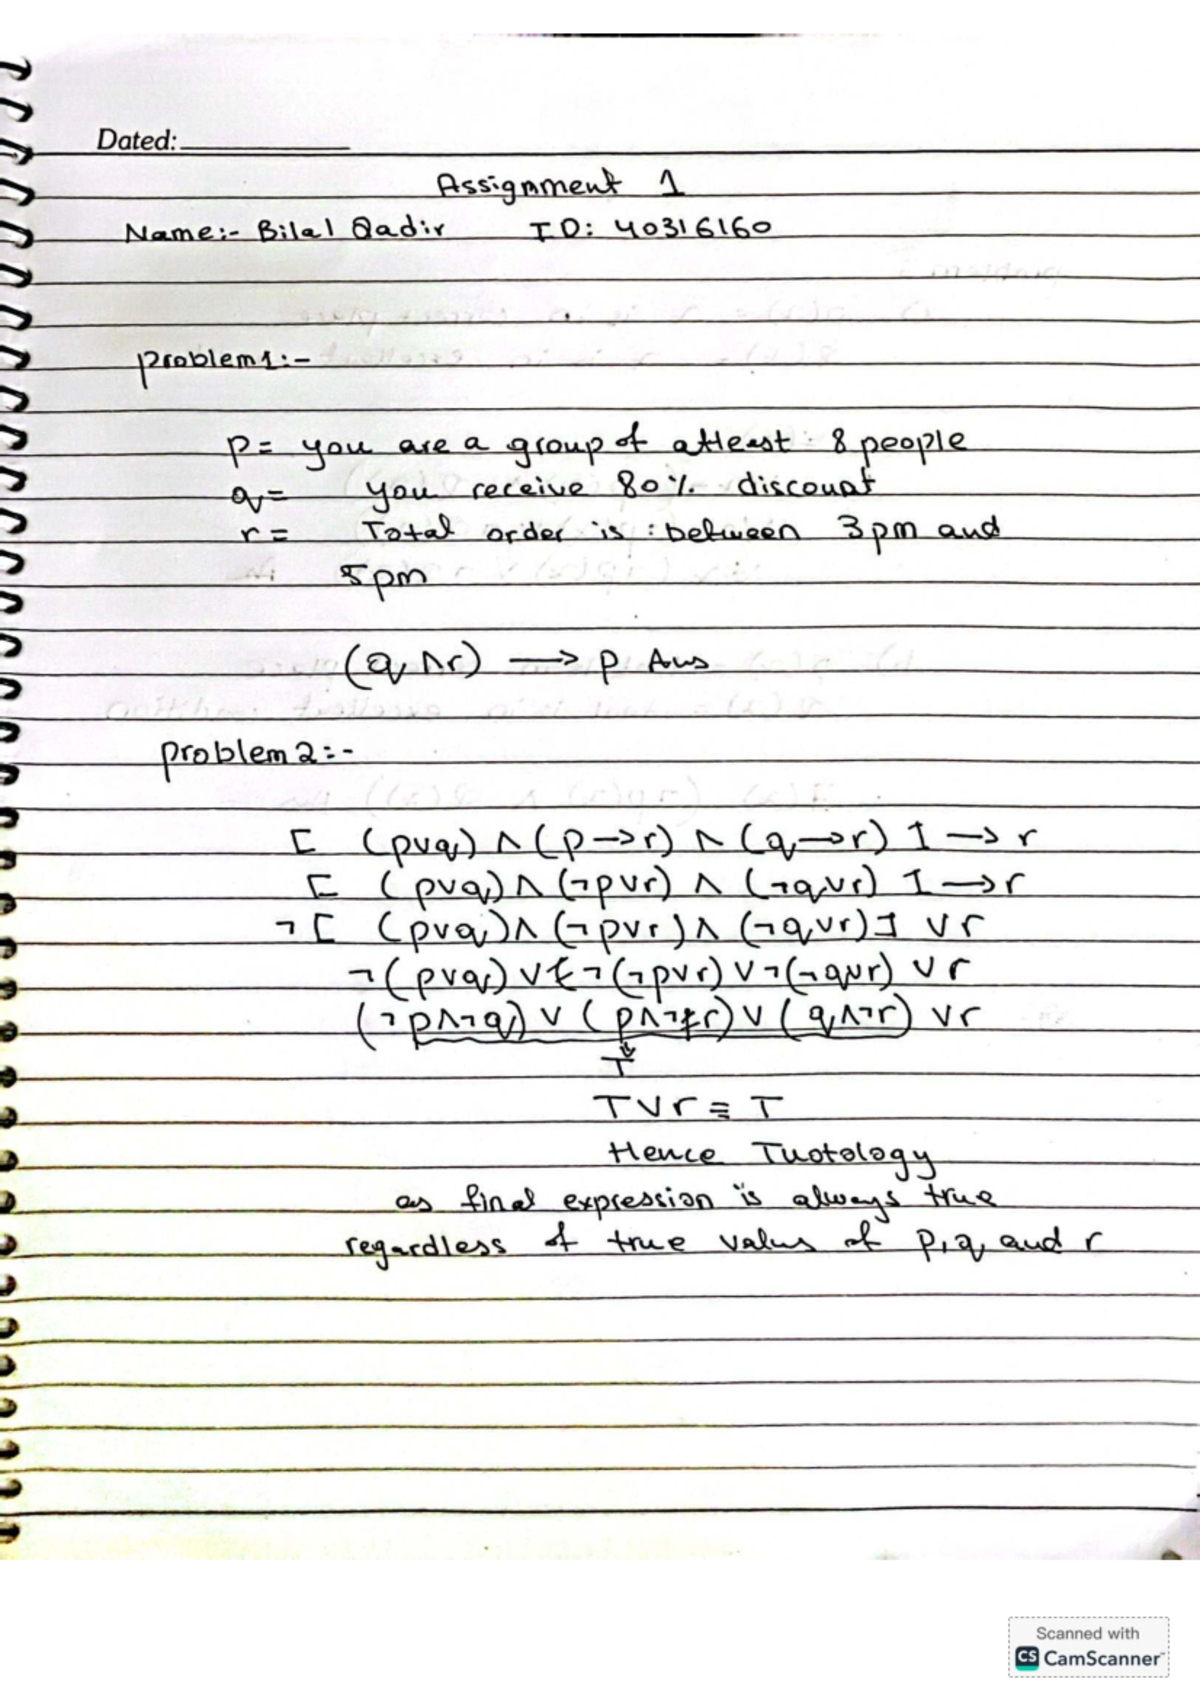 Dated:
Assignment 1
Name:- Bilal Qadir ID: 40316160
problem1:-
p= you are a group of atleast 8 people
q= you receive 80% discount
r= Total order is : between 3pm and
5pm
(q ∧ r) → p Ans
problem2:-
[ (p∨q) ∧ (p→r) ∧ (q→r) ] → r
[ (p∨q) ∧ (¬p∨r) ∧ (¬q∨r) ] → r
¬[ (p∨q) ∧ (¬p∨r) ∧ (¬q∨r) ] ∨ r
¬(p∨q) ∨ ¬(¬p∨r) ∨ ¬(¬q∨r) ∨ r
(¬p∧¬q) ∨ (p∧¬r) ∨ (q∧¬r) ∨ r
T
T∨r ≡ T
Hence Tuotology
as final expression is always true
regardless of true value of p,q, and r
Scanned with
CS CamScanner